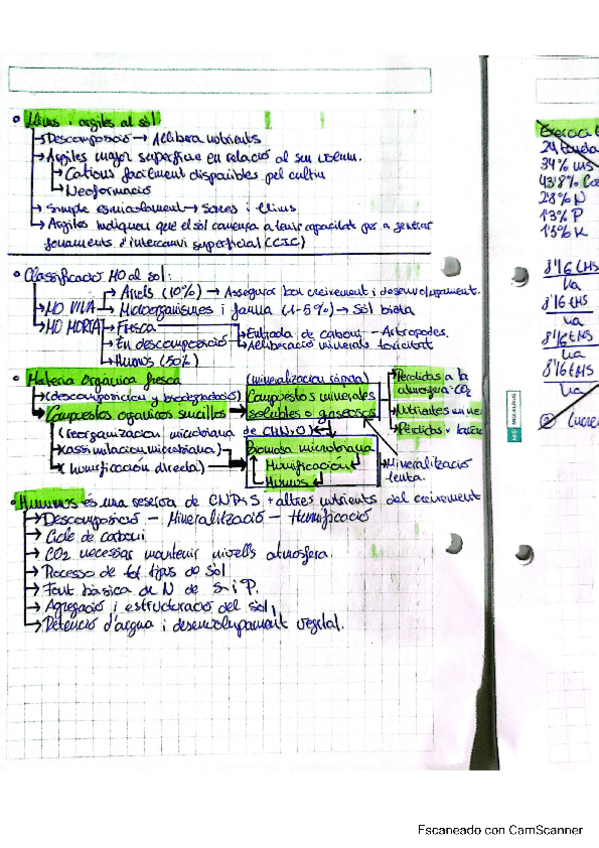 Llims i argiles al sòl
Descomposició → Allibera nutrients
Argiles major superficie en relació al seu volum.
Cations facilment disponibles pel cultiu
Neoformació
Simple esmicolament → Sorres i llims
Argiles indiquen que el sòl comença a tenir capacitat per a generar
fenomens d'intercanvi superficial (CIC)
Classificació MO al sòl:
Arrels (10%) → Assegura bon creixement i desenvolupament.
MO VIVA → Microorganismes i fauna (1-5%) → Sòl biota
MO MORTA → Fresca
Entrada de carboni - Artropodes.
En descomposició
Alliberació minerals toxicitat
Humus (50%)
Materia Orgànica fresca
(mineralizacion rápida)
Perdidas a la
atmosfera-CO2
(descomposicion y biodegradacio)
Compuestos minerales
Compuestos organicos sencillos
solubles o gaseosos
Nutrientes en
Pérdidas x
(reorganizacion microbiana de CNN2O)
(xassimilacion microbiana)
Biomasa microbiana
(x humificación directa)
Humificacion
Mineralització
Humus
lenta.
Humus és una reserva de CNPiS + altres nutrients del creixement
Descomposició - Mineralització - Humificació
Cicle de carboni
CO2 necessari mantenir nivells atmosfera.
Processo de tot tipus de sol
Font bàsica de N de S i P.
Agregació i estructuració del sòl,
Detenció d'aigua i desenvolupament vegetal.
Exercici
34% ms
43'8%
2'8% N
1'3% P
1'5% K
8'16 t MS
ha
8'16 t MS
ha
8'16 t MS
ha
8'16 t MS
ha
②
MIQUELRIUS
Escaneado con CamScanner